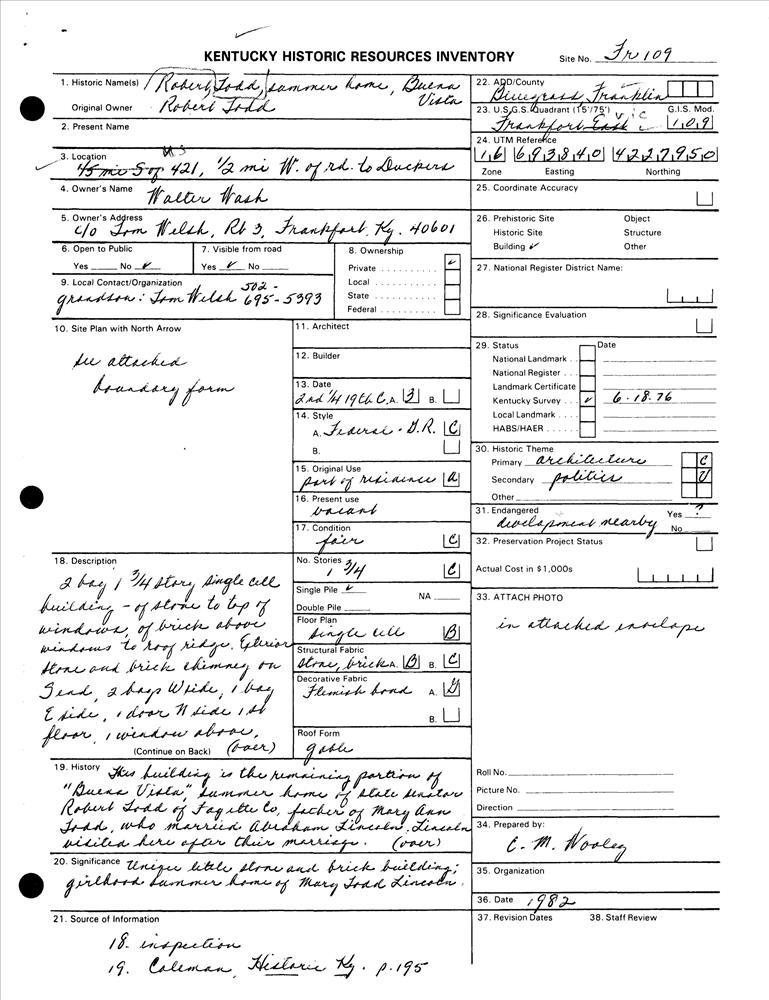 KENTUCKY HISTORIC RESOURCES INVENTORY
Site No. Fr 109
1. Historic Name(s) Robert Todd, summer home, Buena Vista
Original Owner Robert Todd
2. Present Name
3. Location 45 mi S of US 421, 1/2 mi W. of rd. to Duckers
4. Owner's Name Walter Wash
5. Owner's Address c/o Tom Welsh, Rt 3, Frankfort, Ky. 40601
6. Open to Public
Yes No ✓
7. Visible from road
Yes ✓ No
8. Ownership
Private ✓
Local
State
Federal
9. Local Contact/Organization
grandson: Tom Welsh 502-695-5393
10. Site Plan with North Arrow
see attached
boundary form
11. Architect
12. Builder
13. Date
2nd 1/4 19th C. A. 3 B.
14. Style
A. Federal - G.R. C
B.
15. Original Use
part of residence A
16. Present use
vacant
17. Condition
fair C
18. Description
2 bay 1 3/4 story single cell
building - of stone to top of
windows, of brick above
windows to roof ridge. Exterior
stone and brick chimney on
S end, 2 bays W side, 1 bay
E side, 1 door N side 1st
floor, 1 window above,
(Continue on Back) (over)
No. Stories
1 3/4 C
Single Pile ✓ NA
Double Pile
Floor Plan
single cell B
Structural Fabric
stone, brick A. B B. C
Decorative Fabric
Flemish bond A. G
B.
Roof Form
gable
19. History This building is the remaining portion of
"Buena Vista," summer home of state senator
Robert Todd of Fayette Co, father of Mary Ann
Todd, who married Abraham Lincoln. Lincoln
visited here after their marriage. (over)
20. Significance Unique little stone and brick building;
girlhood summer home of Mary Todd Lincoln.
21. Source of Information
18. inspection
19. Coleman, Historic Ky. p. 195
22. ADD/County
Bluegrass, Franklin
23. U.S.G.S. Quadrant (15'/75') G.I.S. Mod.
Frankfort East 1 0 9
24. UTM Reference
1 6 6 9 3 8 4 0 4 2 2 7 9 5 0
Zone Easting Northing
25. Coordinate Accuracy
26. Prehistoric Site Object
Historic Site Structure
Building ✓ Other
27. National Register District Name:
28. Significance Evaluation
29. Status Date
National Landmark
National Register
Landmark Certificate
Kentucky Survey ✓ 6-18-76
Local Landmark
HABS/HAER
30. Historic Theme
Primary architecture C
Secondary politics V
Other
31. Endangered Yes ?
development nearby No
32. Preservation Project Status
Actual Cost in $1,000s
33. ATTACH PHOTO
in attached envelope
Roll No.
Picture No.
Direction
34. Prepared by:
C. M. Wooley
35. Organization
36. Date 1982
37. Revision Dates 38. Staff Review